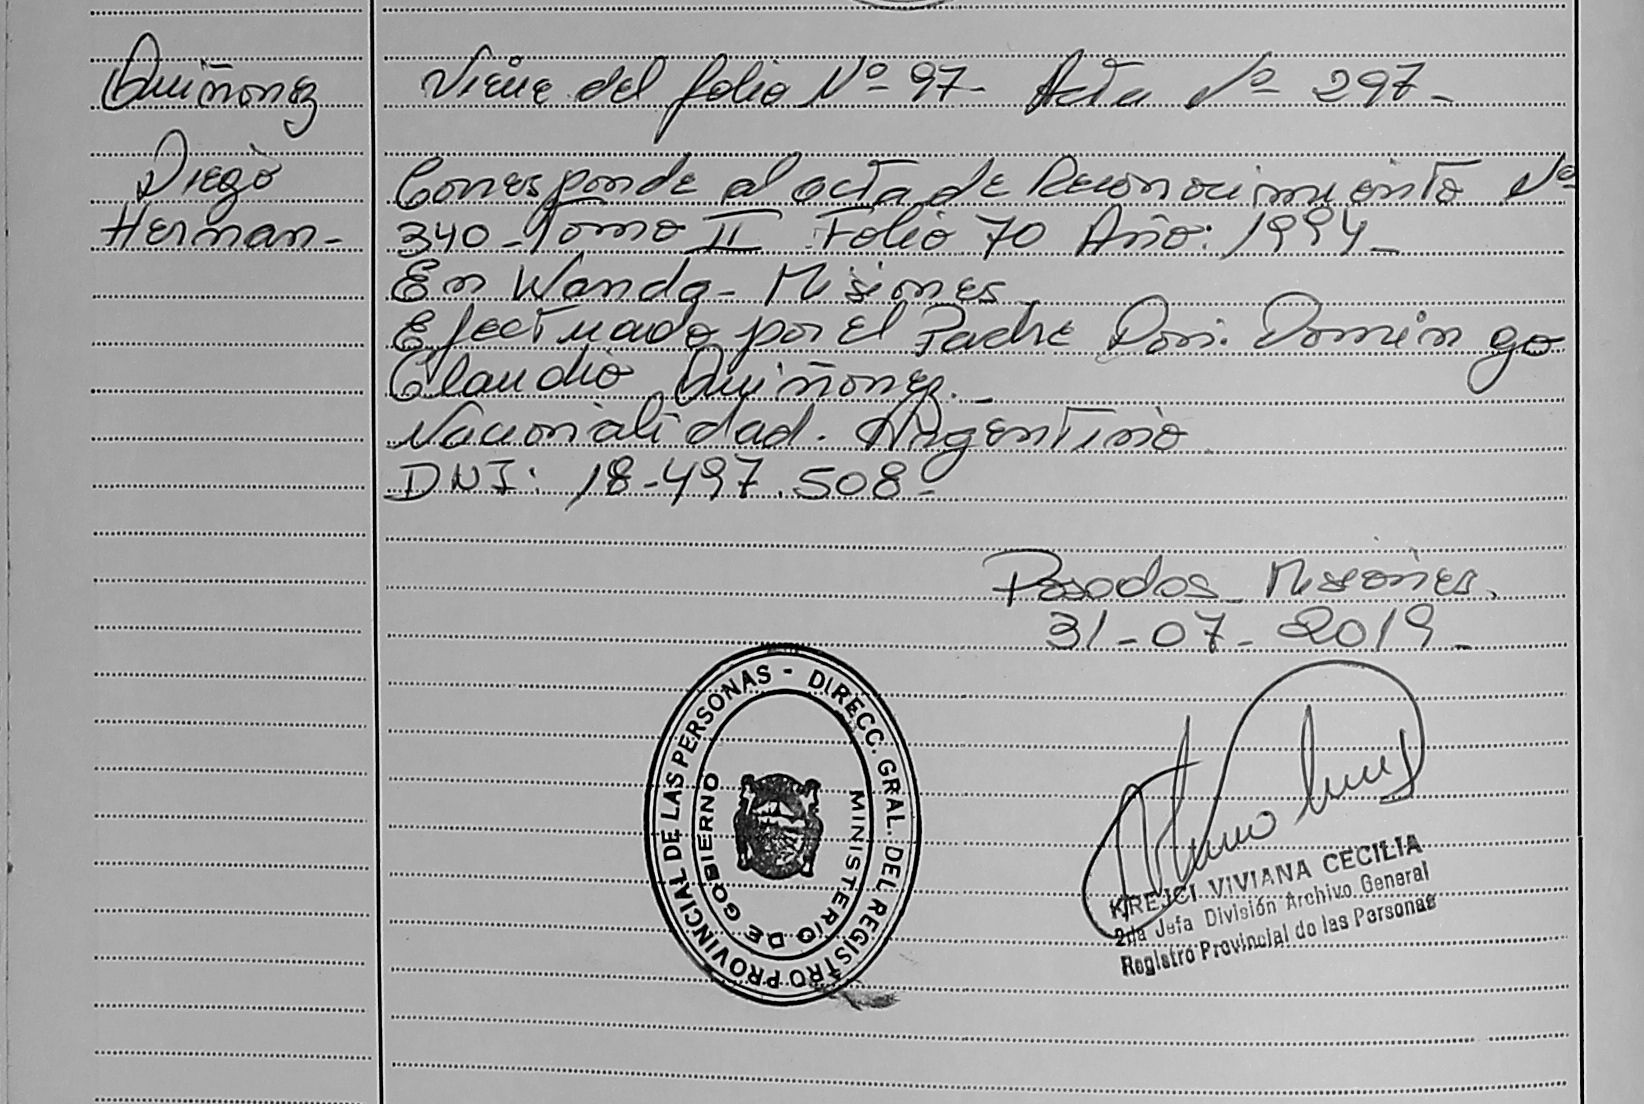 Quiñonez
Diego
Hernan-
Viene del folio Nº 97- Acta Nº 297-
Corresponde al acta de Reconocimiento Nº
340-Tomo II Folio 70 Año: 1994-
En Wanda- Misiones
Efectuado por el Padre Don: Domingo
Claudio Quiñonez.-
Nacionalidad. Argentino
DNI: 18-497.508-
Posadas Misiones.
31-07-2019-
DIRECC. GRAL. DEL REGISTRO PROVINCIAL DE LAS PERSONAS -
MINISTERIO DE GOBIERNO
KREJCI VIVIANA CECILIA
2da Jefa División Archivo General
Registro Provincial de las Personas